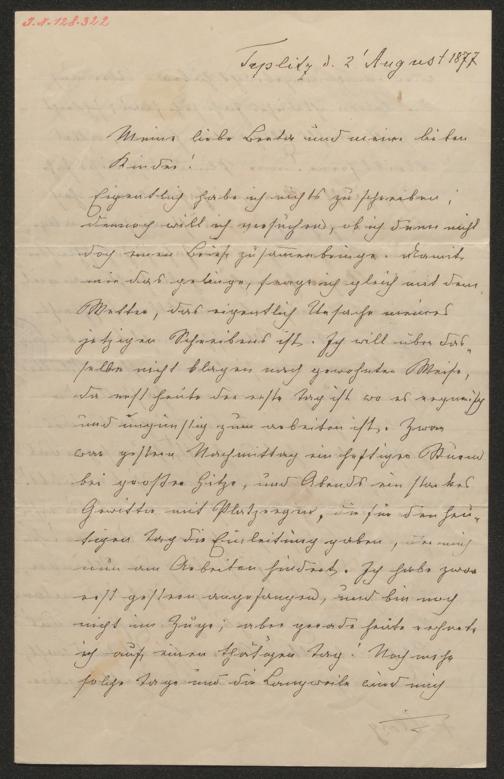 J.N. 128.322
Teplitz d. 2' August 1877
Meine liebe Berta und meine lieben
Kinder!
Eigentlich habe ich nichts zu schreiben;
dennoch will ich versuchen, ob ich denn nicht
doch einen Brief zusammenbringe. Damit
mir das gelinge, fange ich gleich mit dem
Wetter, das eigentlich Ursache meines
jetzigen Schreibens ist. Ich will über das-
selbe nicht klagen nach gewohnter Weise,
da erst heute der erste Tag ist wo es regnerisch
und ungünstig zum arbeiten ist. Zwar
war gestern Nachmittag ein heftiger Sturm
bei großer Hitze, und Abends ein starkes
Gewitter mit Platzregen, die für den heu-
tigen Tag die Einleitung gaben, der mich
nun am Arbeiten hindert. Ich habe zwar
erst gestern angefangen, und bin noch
nicht im Zuge; aber gerade heute rechnete
ich auf einen thätigen Tag! Noch mehr
solche Tage und die Langweile wird mich